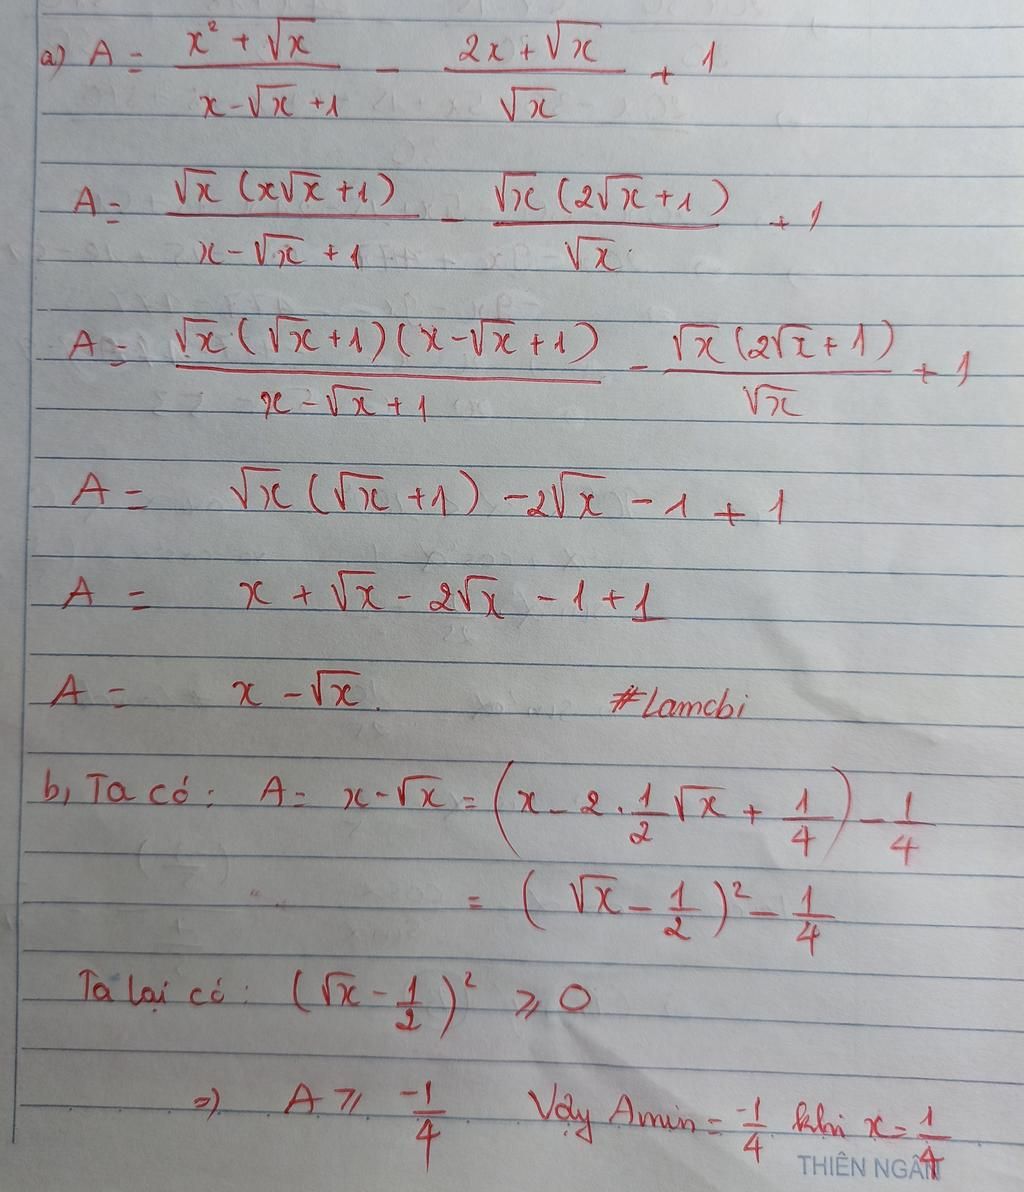 a) A = \frac{x² + √x}{x - √x + 1} - \frac{2x + √x}{√x} + 1
A = \frac{√x (x√x + 1)}{x - √x + 1} - \frac{√x (2√x + 1)}{√x} + 1
A = \frac{√x (√x + 1)(x - √x + 1)}{x - √x + 1} - \frac{√x (2√x + 1)}{√x} + 1
A = √x (√x + 1) - 2√x - 1 + 1
A = x + √x - 2√x - 1 + 1
A = x - √x. #Lamcbi
b, Ta có: A = x - √x = (x - 2 \cdot \frac{1}{2} √x + \frac{1}{4}) - \frac{1}{4}
= (√x - \frac{1}{2})² - \frac{1}{4}
Ta lại có: (√x - \frac{1}{2})² ⩾ 0
⇒ A ⩾ \frac{-1}{4} Vậy Amin = \frac{-1}{4} khi x = \frac{1}{4}
THIÊN NGÂN